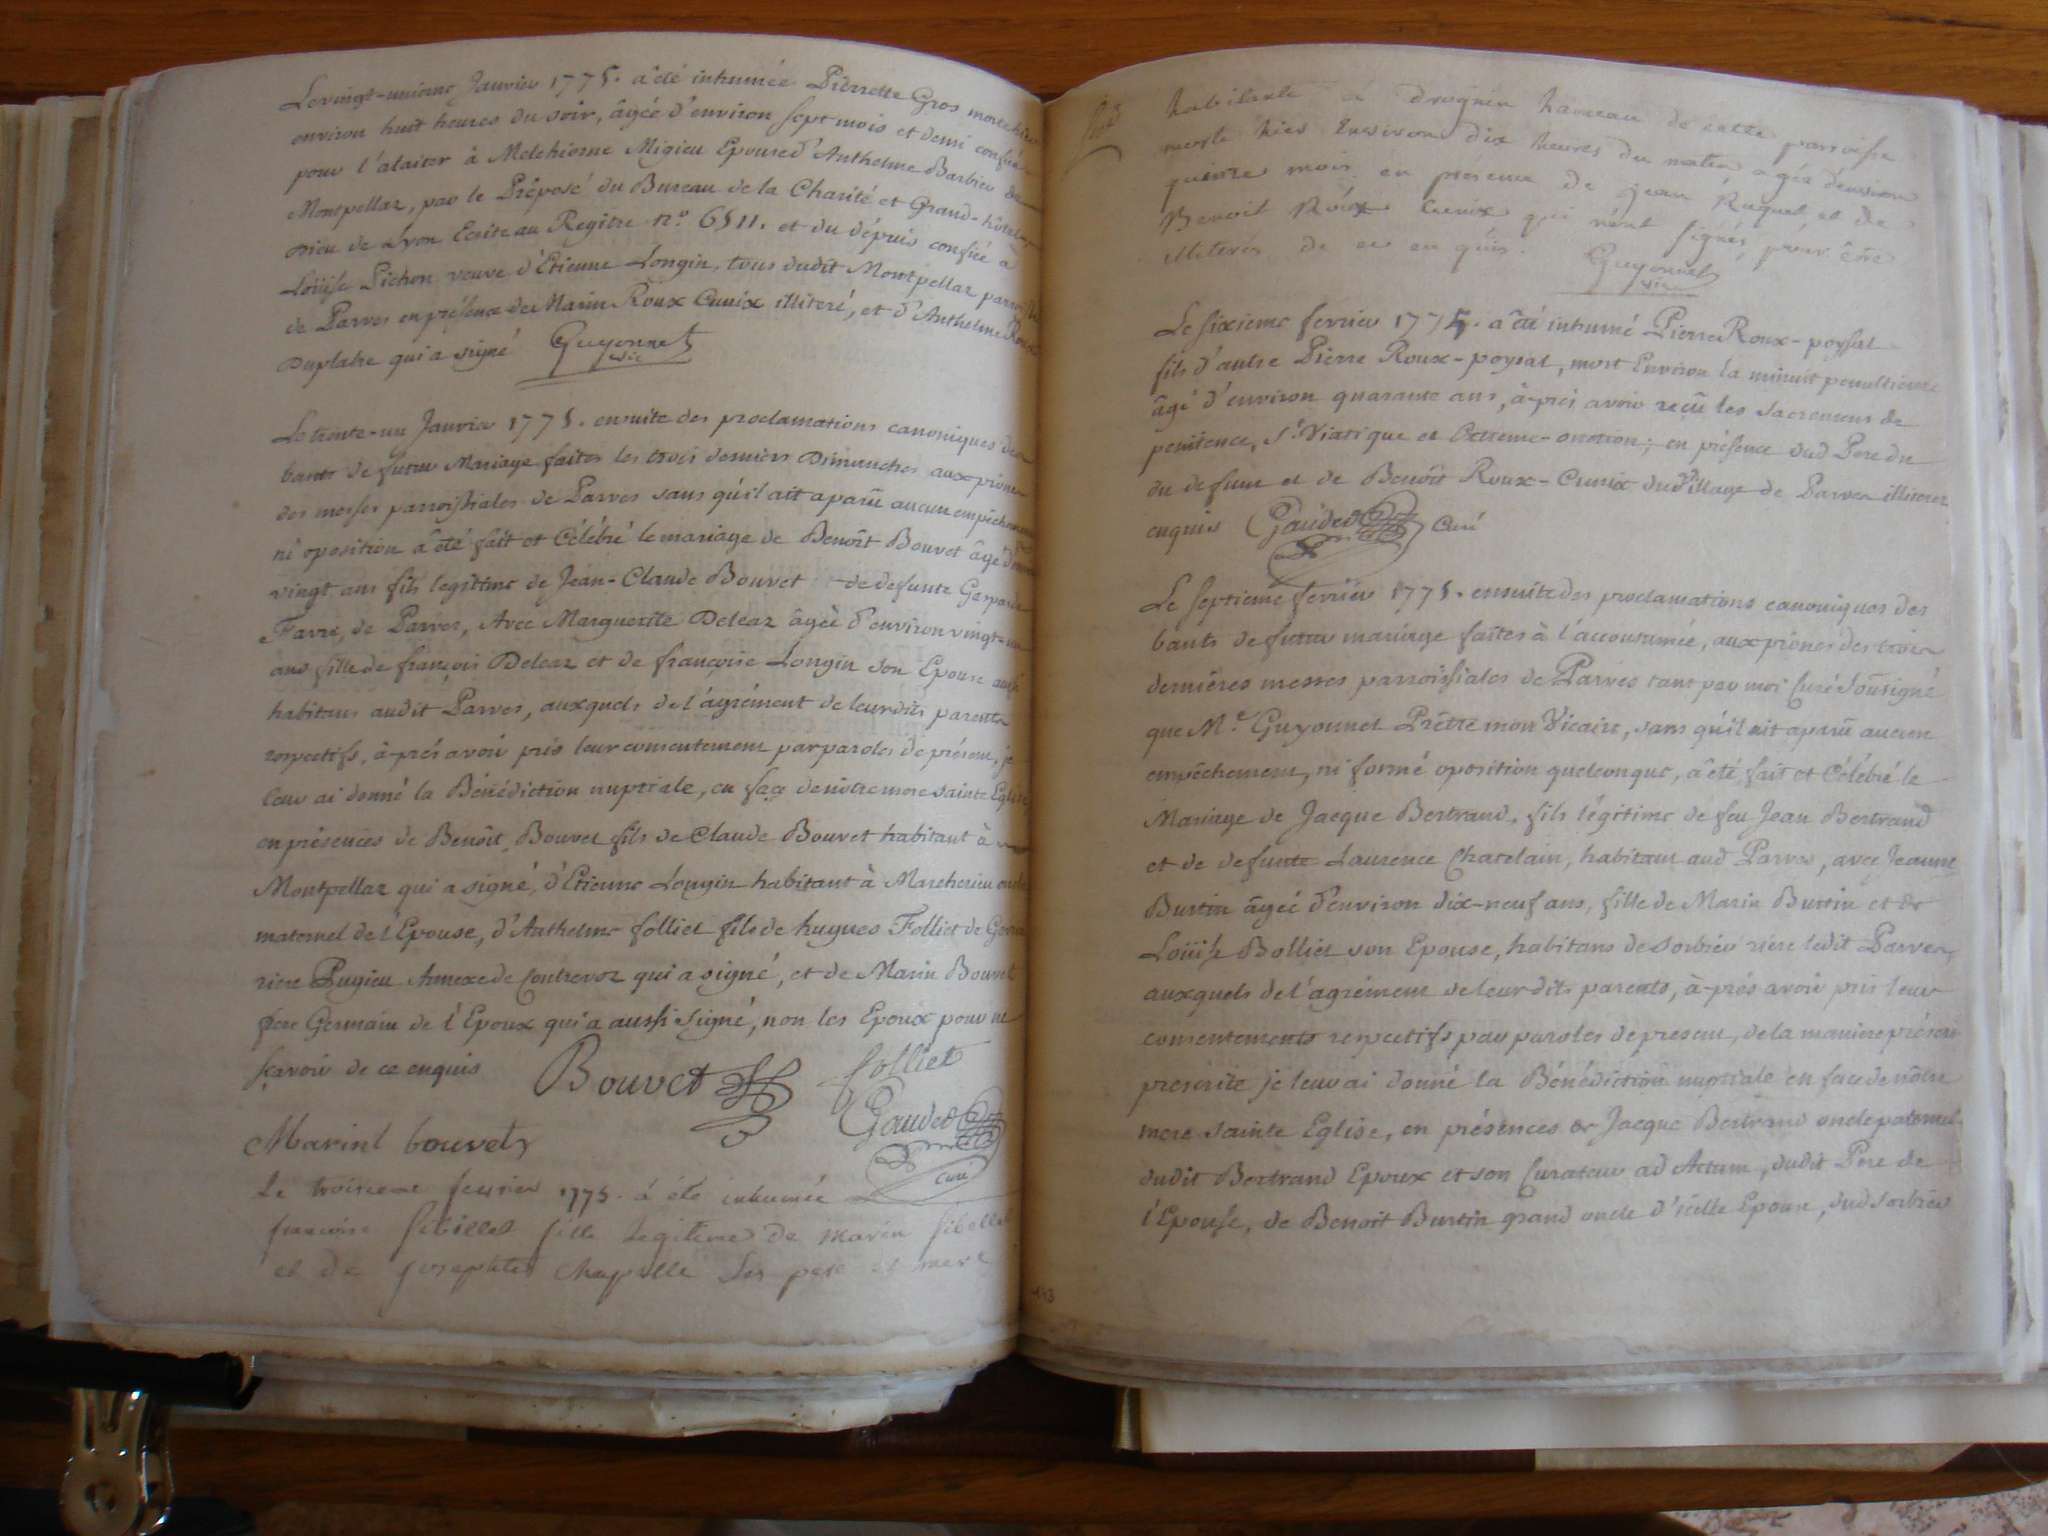 Le vingt-unieme Janvier 1775. a été inhumée Pierrette Gros morte hier
environ huit heures du soir, âgée d'environ sept mois et demi confiée
pour l'alaiter à Melchionne Migieu Epouse d'Anthelme Barbier de
Montpellaz, par le Préposé du Bureau de la Charité et Grand-hôtel
Dieu de Lyon Ecrite au Regître n.o 6511. et du dépuis confiée à
Loüise Pichon veuve d'Etienne Longin, tous dudit Montpellaz parroisse
de Parves en présence de Marin Roux Cunix illiteré, et d'Anthelme Roux
Duplatre qui a signé Guyonnet
vic
Le trente-un Janvier 1775. ensuite des proclamations canoniques des
bants de futur Mariage faites les trois derniers Dimanches aux prônes
des messes parroissiales de Parves sans qu'il ait aparû aucun empêchement
ni oposition a été fait et Célébré le mariage de Benoît Bouvet âgé d'environ
vingt ans fils legitime de Jean-Claude Bouvet de defunte Gesparde
Favre, de Parves, Avec Marguerite Deleaz âgée d'environ vingt-un
ans fille de françois Deleaz et de françoise Longin son Epouse aussi
habitans audit Parves, auxquels de l'agrément de leurdits parents
respectifs, à-prés avoir pris leur consentement par paroles de présent, je
leur ai donné la Bénédiction nuptiale, en façe de nôtre mere sainte Eglise,
en présences de Benoît Bouvet fils de Claude Bouvet habitant à
Montpellaz qui a signé, d'Etienne Longin habitant à Marcherieu oncle
maternel de l'Epouse, d'Anthelme folliet fils de hugues Folliet de
riere Pugieu Annexe de Contrevoz qui a signé, et de Marin Bouvet
frere Germain de l'Epoux qui a aussi signé, non les Epoux pour ne
sçavoir de ce enquis Bouvet folliet
Gaudet
Marint bouvet
curé
Le troisieme fevrier 1775. a été inhumée
francoise sibillet fille legitime de marin sibellet
et de josephte chapelle ses pere et mere
143
habitante a drognin hameau de cette parroisse
morte hier Environ dix heures du matin agée denviron
quinze mois en présence de jean Ruquet et de
Benoit Roux Cunix qui n'ont signés pour être
illiterés de ce enquis. Guyonnet
vic
Le sixieme fevrier 1775. a été inhumé Pierre Roux-poysat
fils d'autre Pierre Roux-poysat, mort Environ la minuit penultieme
âgé d'environ quarante ans, à-prés avoir reçû les sacremens de
penitence, St. Viatique et Extreme-onction; en présence dud Pere du
du defunt et de Benoît Roux-Cunix dud village de Parves illiterez
enquis Gaudet Curé
Le septieme fevrier 1775. ensuite des proclamations canoniques des
bants de futur mariage faites à l'accoutumée, aux prônes des trois
dernières messes parroissiales de Parves tant par moi Curé soussigné
que Mr. Guyonnet Prêtre mon Vicaire, sans qu'il ait aparû aucun
empêchement, ni formé oposition quelconque, a été fait et Célébré le
Mariage de Jacque Bertrand, fils légitime de feu Jean Bertrand
et de defunte Laurence Chatelain, habitant aud Parves, avec Jeanne
Burtin âgée d'environ dix-neuf ans, fille de Marin Burtin et de
Loüise Bolliet son Epouse, habitans de sorbier riere ledit Parves,
auxquels de l'agrément de leurdits parents, à-prés avoir pris leur
consentements respectifs par paroles de present, de la maniere
prescrite je leur ai donné la Bénédiction nuptiale en face de nôtre
mere sainte Eglise, en présences de Jacque Bertrand oncle paternel
dudit Bertrand Epoux et son Curateur ad Actum, dudit Pere de
l'Epouse, de Benoit Burtin grand oncle d'icelle Epouse, dud sorbier